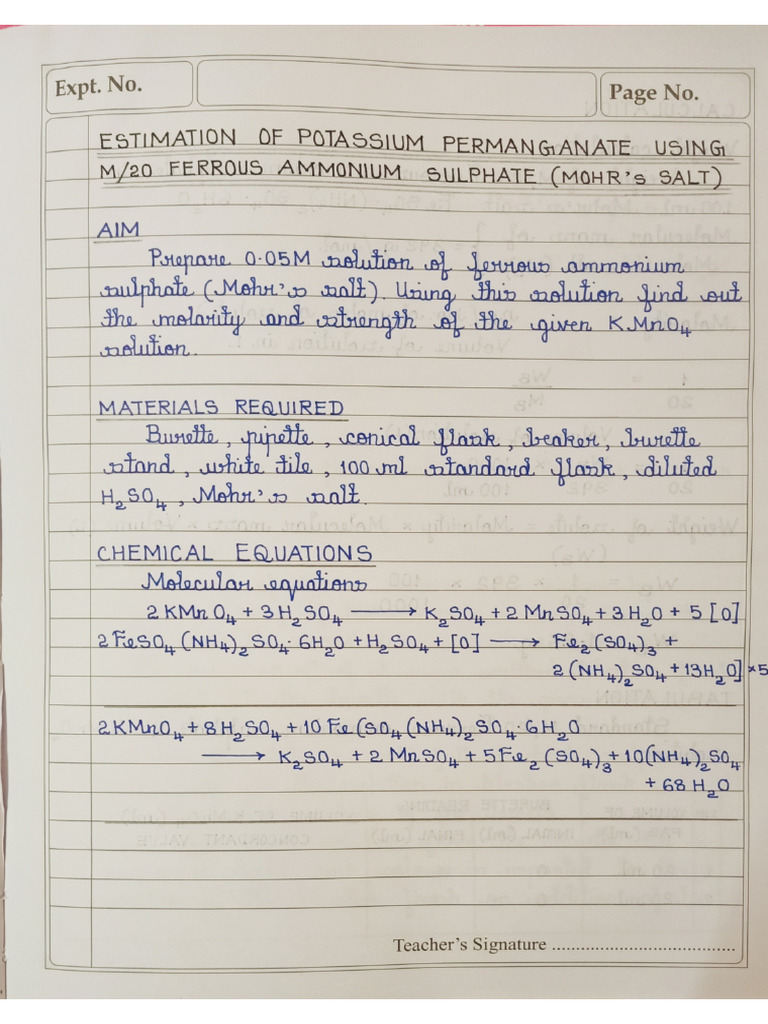 Expt. No.
Page No.
ESTIMATION OF POTASSIUM PERMANGANATE USING
M/20 FERROUS AMMONIUM SULPHATE (MOHR's SALT)
AIM
Prepare 0.05M solution of ferrous ammonium
sulphate (Mohr's salt). Using this solution find out
the molarity and strength of the given KMnO₄
solution.
MATERIALS REQUIRED
Burette, pipette, conical flask, beaker, burette
stand, white tile, 100 ml standard flask, diluted
H₂SO₄, Mohr's salt.
CHEMICAL EQUATIONS
Molecular equations
2 KMnO₄ + 3 H₂SO₄ ⟶ K₂SO₄ + 2 MnSO₄ + 3 H₂O + 5 [O]
2 FeSO₄ (NH₄)₂ SO₄· 6H₂O + H₂SO₄ + [O] ⟶ Fe₂ (SO₄)₃ +
2 (NH₄)₂ SO₄ + 13H₂O] × 5
2 KMnO₄ + 8 H₂SO₄ + 10 Fe (SO₄ (NH₄)₂ SO₄ · 6H₂O
⟶ K₂SO₄ + 2 MnSO₄ + 5 Fe₂ (SO₄)₃ + 10(NH₄)₂ SO₄
+ 68 H₂O
Teacher's Signature .....................................